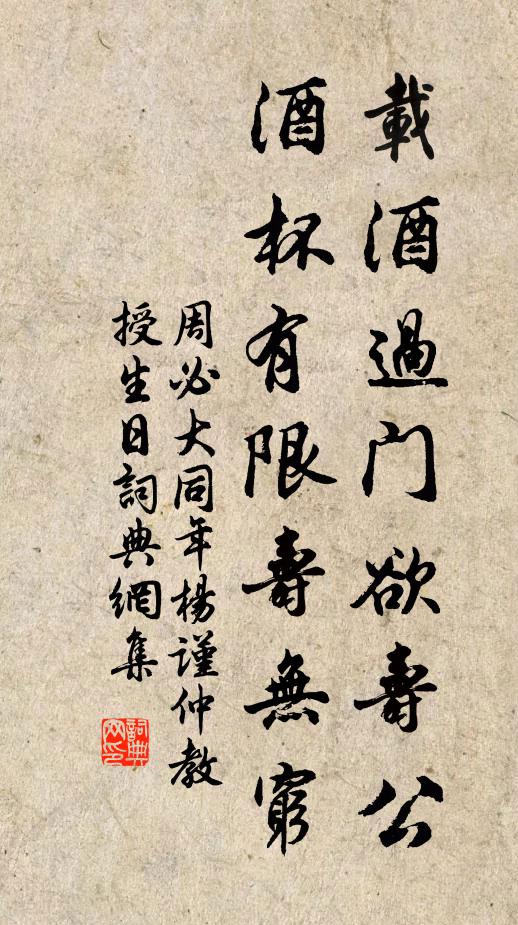 載酒過門欲壽公
酒杯有限壽無窮
周必大同年楊謹仲教
授生日詞典網集
詞典
网印